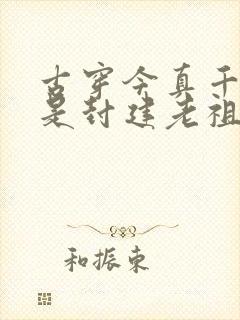 古穿今真千
是封建老祖
和振东